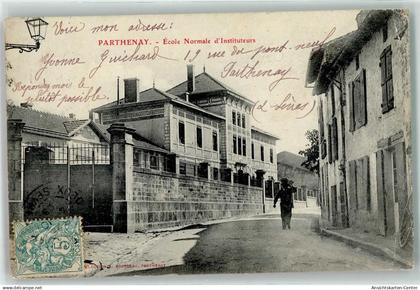 Voici mon adresse:
PARTHENAY. - École Normale d'Instituteurs
Yvonne Guichard 19 rue du pont-neuf
Parthenay
Répondez moi le
plutôt possible
(2 Sèvres)
www.ansichtskarten-center.de